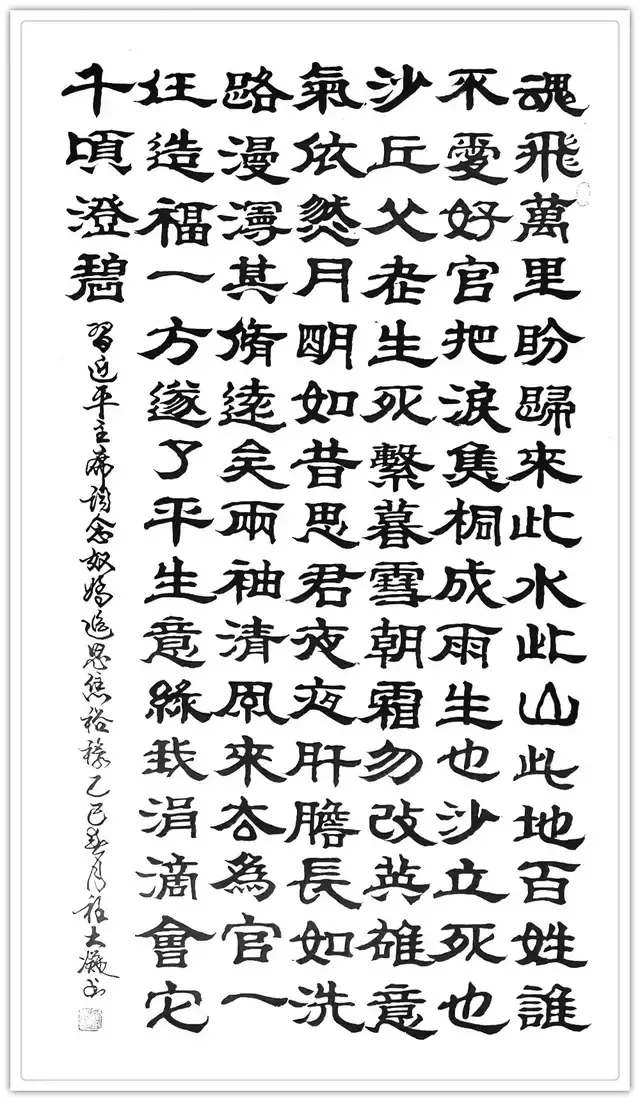 魂飛萬里盼歸來此水此山此地百姓誰
不愛好官把淚焦桐成雨生也沙立死也
沙丘父老生死繫暮雪朝霜勿改英雄意
氣依然月明如昔思君夜夜肝膽長如洗
路漫漫其脩遠矣兩袖清風來去為官一
任造福一方遂了平生意綠我涓滴會它
千頃澄碧
習近平主席詞念奴嬌追思焦裕祿乙巳春月大書